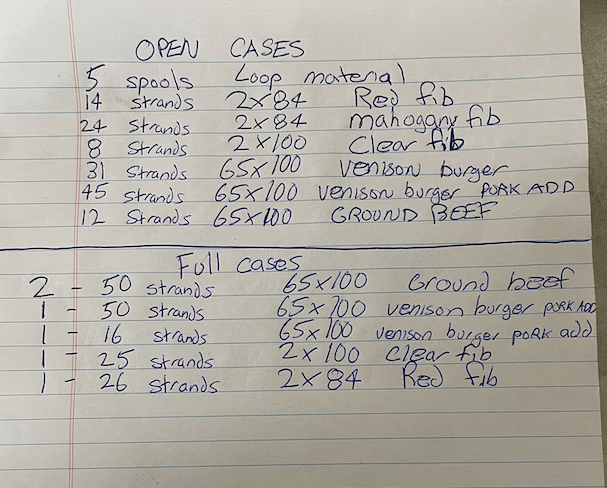 OPEN CASES
5 spools Loop material
14 strands 2x84 Red fib
24 strands 2x84 mahogany fib
8 strands 2x100 Clear fib
31 strands 65x100 venison burger
45 strands 65x100 venison burger PORK ADD
12 strands 65x100 GROUND BEEF
Full cases
2 - 50 strands 65x100 Ground beef
1 - 50 strands 65x100 venison burger PORK ADD
1 - 16 strands 65x100 venison burger PORK add
1 - 25 strands 2x100 Clear fib
1 - 26 strands 2x84 Red fib